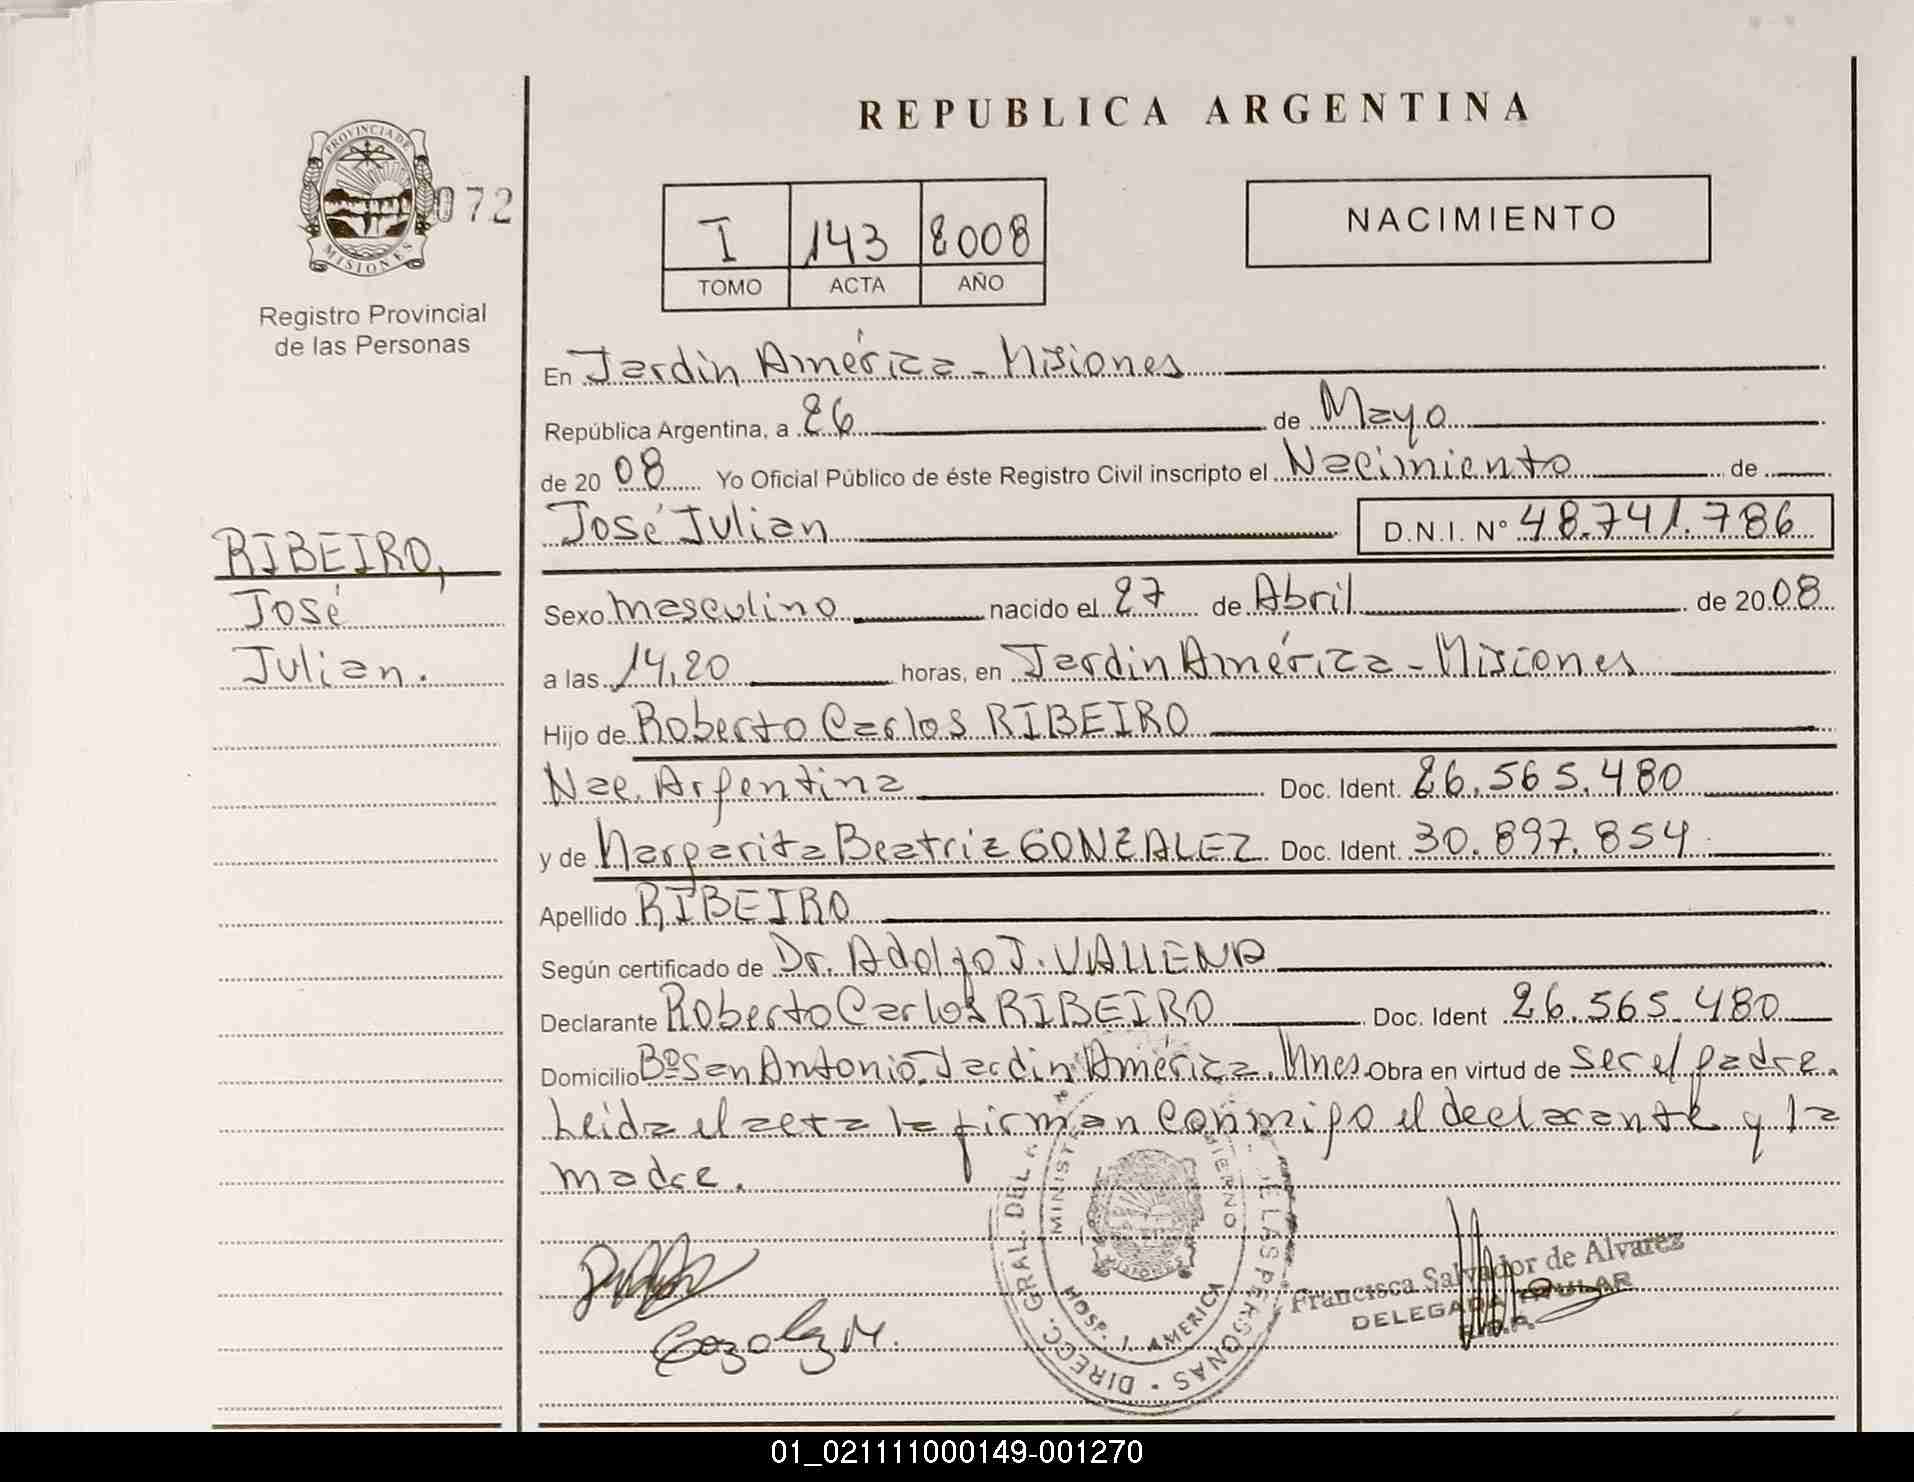 REPUBLICA ARGENTINA
PROVINCIA DE
MISIONES
072
Registro Provincial
de las Personas
I 143 2008
TOMO ACTA AÑO
NACIMIENTO
En Jardin América - Misiones
República Argentina, a 26 de Mayo
de 20 08 Yo Oficial Público de éste Registro Civil inscripto el Nacimiento de
José Julian D.N.I. Nº 48.741.786
RIBEIRO,
José
Julian.
Sexo masculino nacido el 27 de Abril de 20 08
a las 14,20 horas, en Jardin América - Misiones
Hijo de Roberto Carlos RIBEIRO
Nac. Argentina Doc. Ident. 26.565.480
y de Margarita Beatriz GONZALEZ Doc. Ident. 30.897.854
Apellido RIBEIRO
Según certificado de Dr. Adolfo J. VALLENA
Declarante Roberto Carlos RIBEIRO Doc. Ident 26.565.480
Domicilio Bº San Antonio. Jardin América. Mnes. Obra en virtud de ser el padre.
Leida el acta la firman conmigo el declarante y la
madre.
DIRECC. GRAL. DEL DE LAS PERSONAS
HOSP. J. AMERICA
Francisca Salvador de Alvarez
DELEGADA TITULAR
01_021111000149-001270